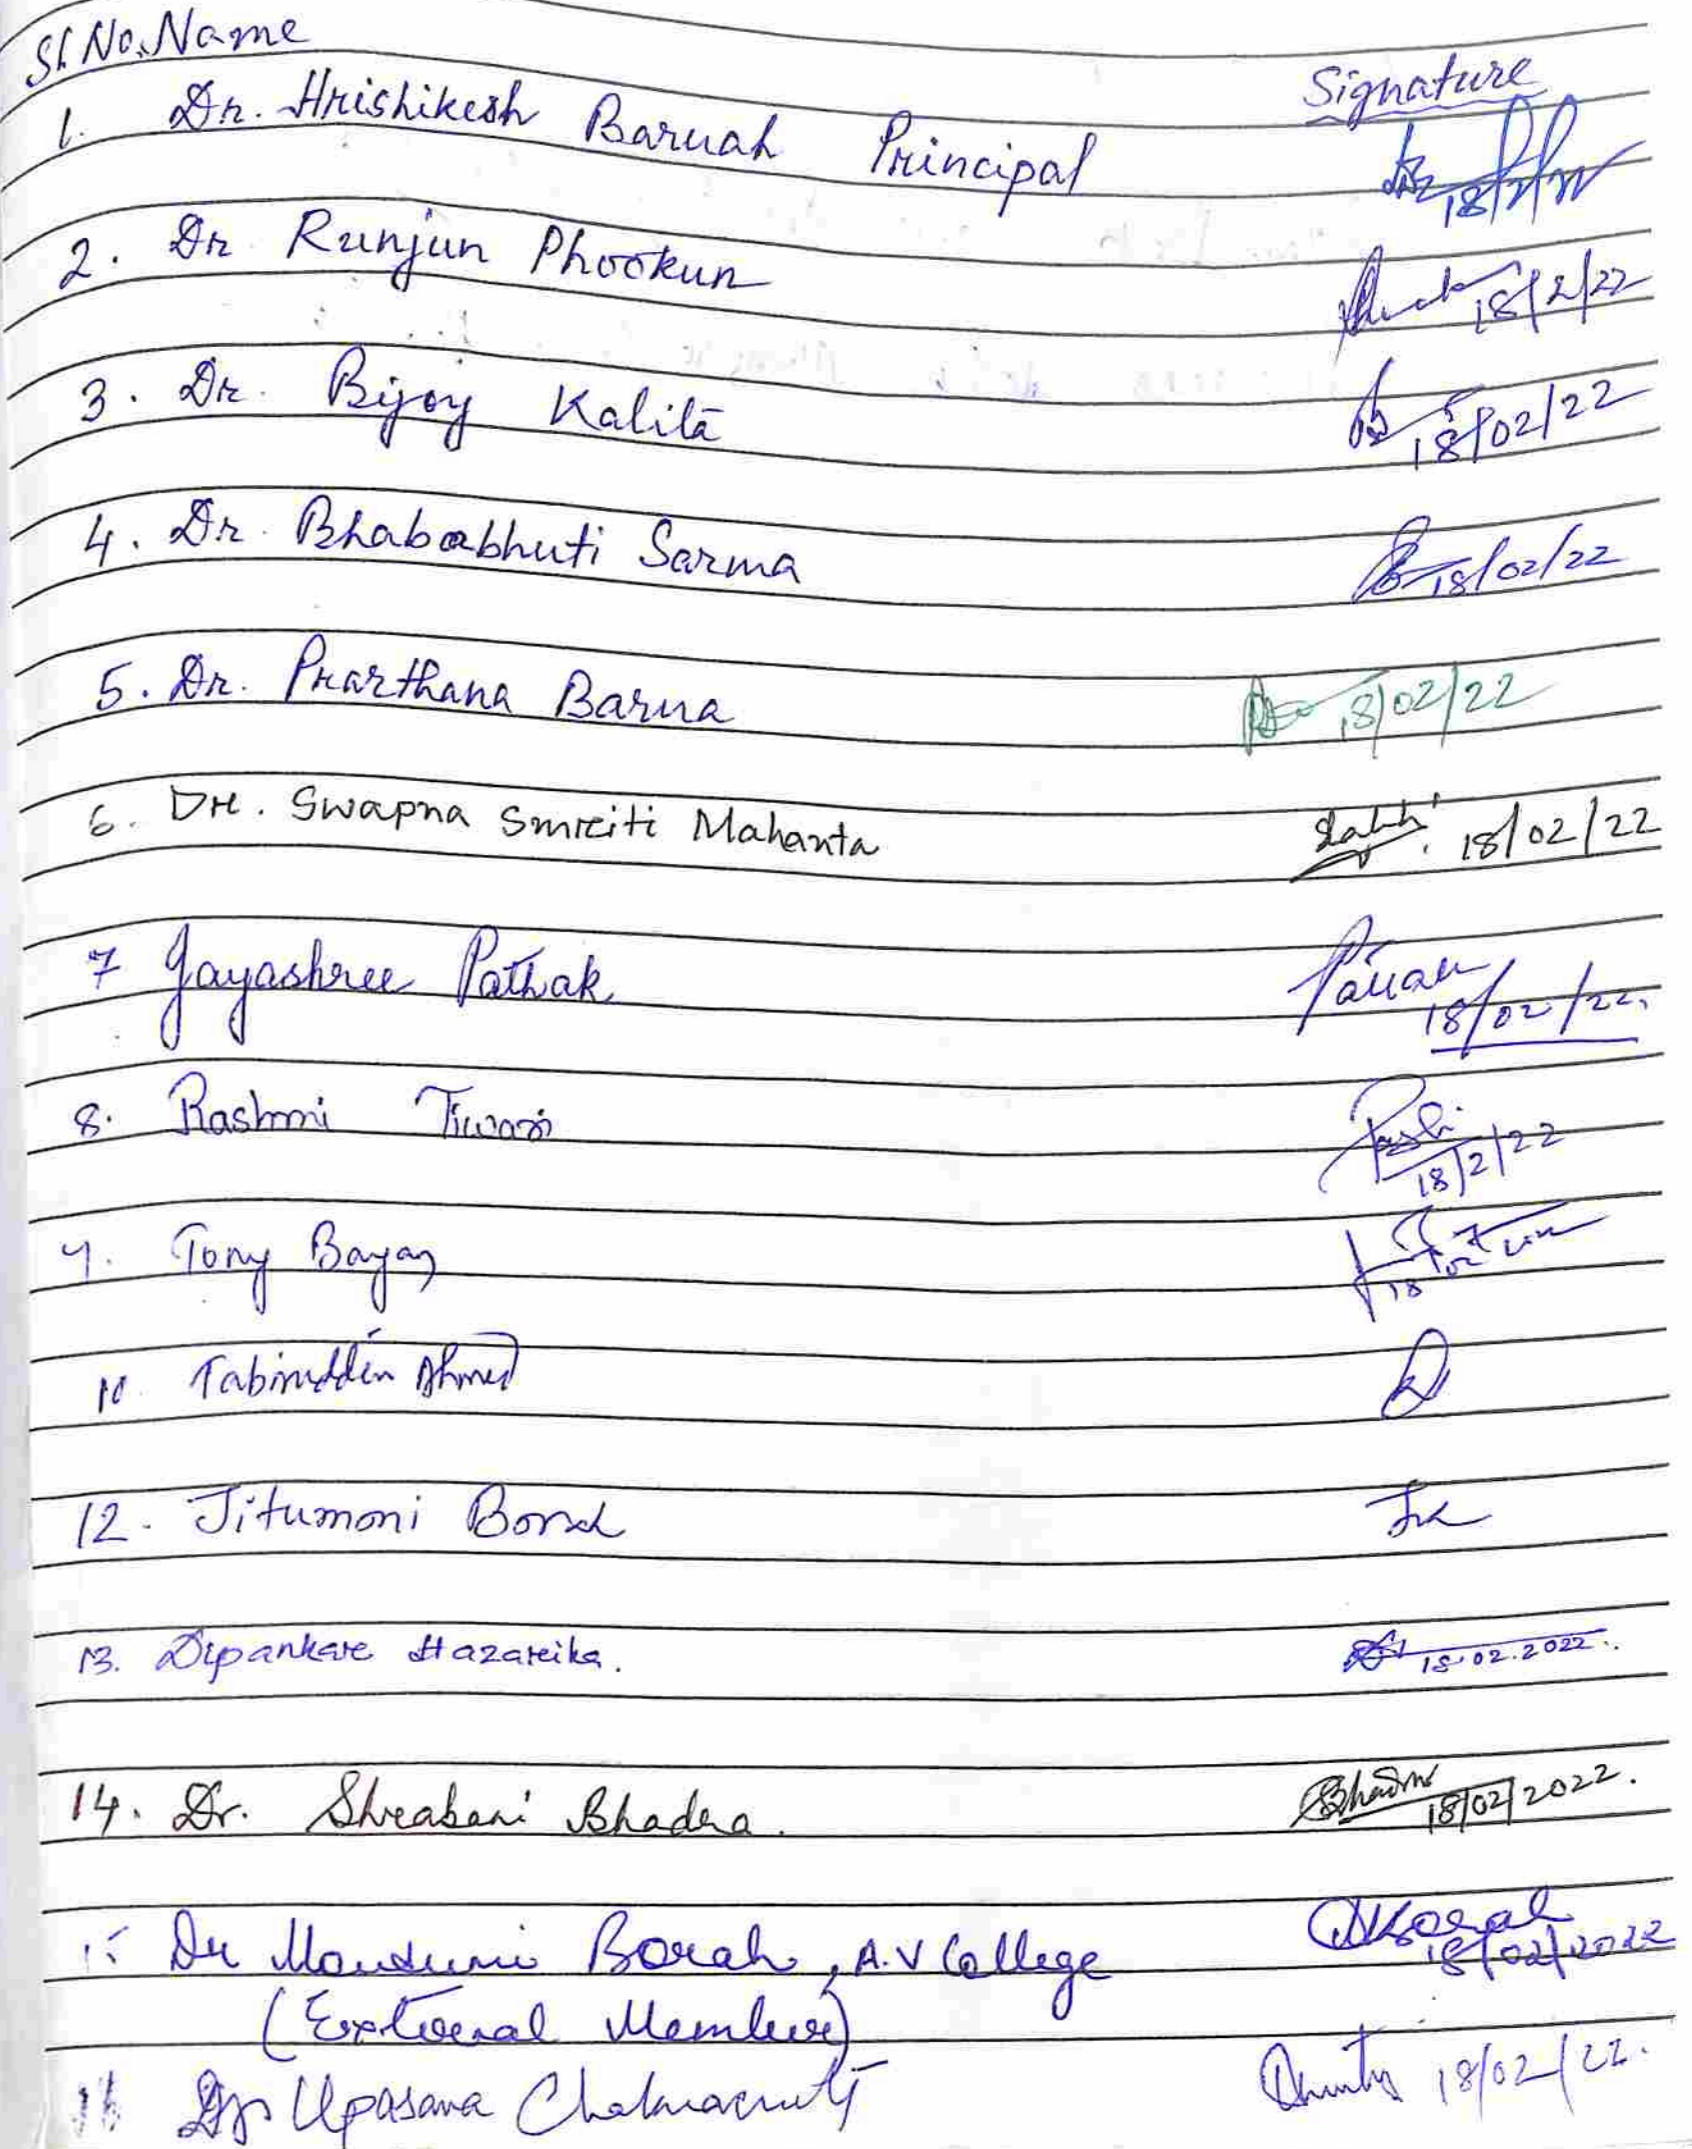 Sl. No. Name
Signature
1. Dr. Hrishikesh Baruah Principal
18/2/22
2. Dr Runjun Phookun 18/2/22
3. Dr. Bijoy Kalita 18/02/22
4. Dr. Bhababhuti Sarma 18/02/22
5. Dr. Prarthana Barua 18/02/22
6. Dr. Swapna Smriti Mahanta 18/02/22
7 Jayashree Pathak
18/02/22.
8. Rashmi Tiwari
18/2/22
9. Tony Bayan
18
10 Tabiruddin Ahmed
12. Jitumoni Borah
13. Dipankar Hazarika. 18.02.2022.
14. Dr. Shrabani Bhadra. 18/02/2022.
15 Dr Borah, A.V College
18/02/2022
(External Member)
16 Upasana Chakravarty 18/02/22.